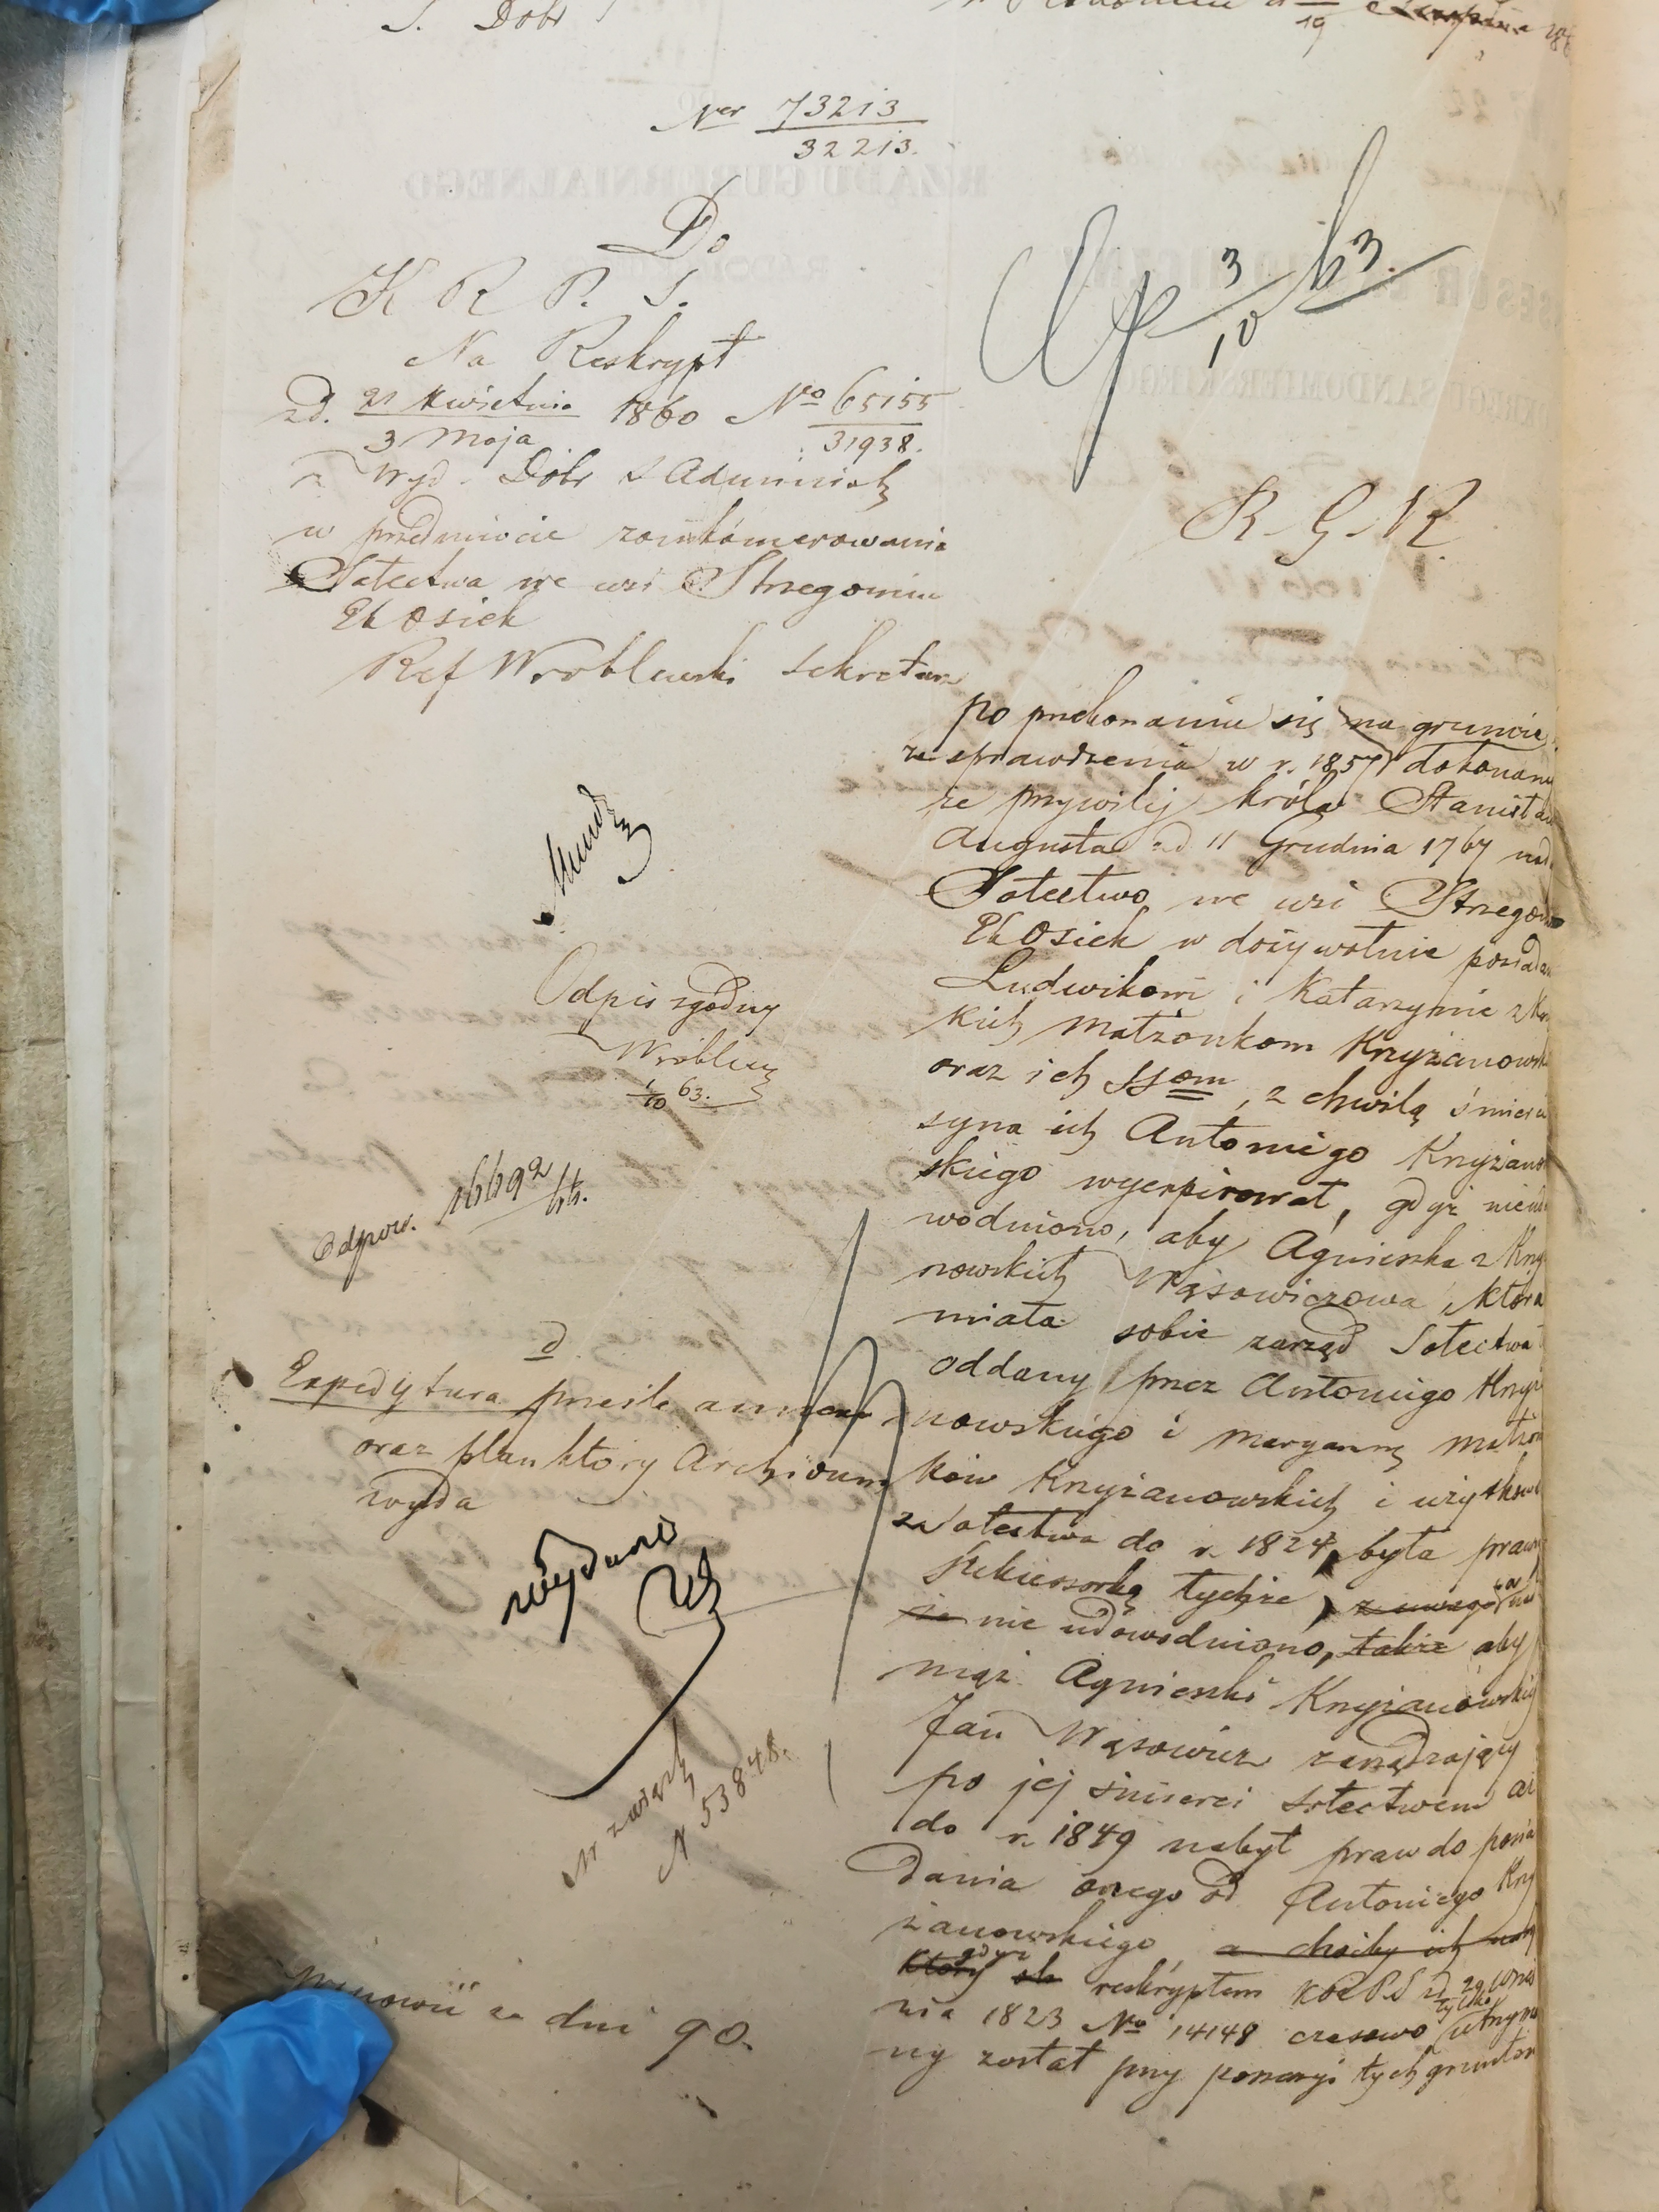 S. Dobr
19
Ner 73213
32213.
Do
K R P. S.
Na Reskrypt
zd. 21 Kwietnia 1860 No 65155
3 Maja 31938.
z Wyd. Dóbr
w przedmiocie zainkamerowania
Sołectwa we wsi Strzegomiu
Ek Osiek
Ref Wróblewski Sekretarz
3/10 63.
R. G. R.
po przekonaniu się na gruncie
ze sprawdzenia w r. 1857 dokonan
że przywilej króla Stanisła
Augusta zd 11 Grudnia 1767 nad
Sołectwo we wsi Strzegom
Ek Osiek w dożywotnie posiada
Ludwikowi i Katarzynie z
kich małżonkom Krzyżanows
oraz ich ssom, z chwilą śmierci
syna ich Antoniego Krzyżano
skiego wyexpirował, gdyż nieu
wodniono, aby Agnieszka z Krzy
nowskich Wąsowiczowa, która
miała sobie zarząd Sołectwa
oddany przez Antoniego Krzyż
nowskiego i Maryannę małżon
ków Krzyżanowskich i
Sołectwa do r. 1824, była praw
sukcessorką tychże, z uwagi
że nie udowodniono, także aby
mąż Agnieszki Krzyżanowskiej
Jan Wąsowicz zarządzający
po jej śmierci Sołectwem aż
do r. 1849 nabył prawdo posia
dania onego od Antoniego Krzy
żanowskiego, a choćby ich
który gdyż reskryptem KRPS zd 29
nia 1823 No 14148 czasowo tylko utrzyma
ny został przy possesyi tych gruntów
Mundz
Odpis zgodny
Wróblews
1/10 63.
Odpow. 16692
64.
d
Expedytura prześle annexa
oraz plan który Archiwum
wyda
wydano
N 53848.
za dni 90.